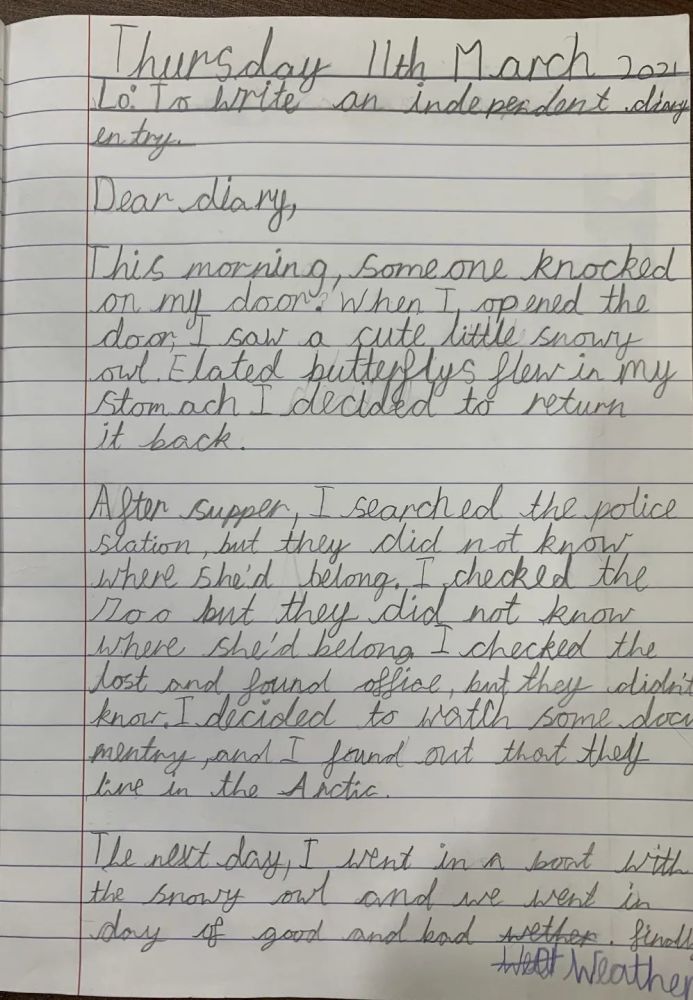 Thursday 11th March 2021
Lo: To write an independent diary
entry.
Dear diary,
This morning, someone knocked
on my door. When I opened the
door, I saw a cute little snowy
owl. Elated butterflys flew in my
stomach I decided to return
it back.
After supper, I searched the police
station, but they did not know
where she'd belong. I checked the
Zoo but they did not know
where she'd belong I checked the
lost and found office, but they didn't
know. I decided to watch some docu
mentry, and I found out that they
live in the Arctic.
The next day, I went in a boat with
the snowy owl and we went in
day of good and bad wether. finally
Weather